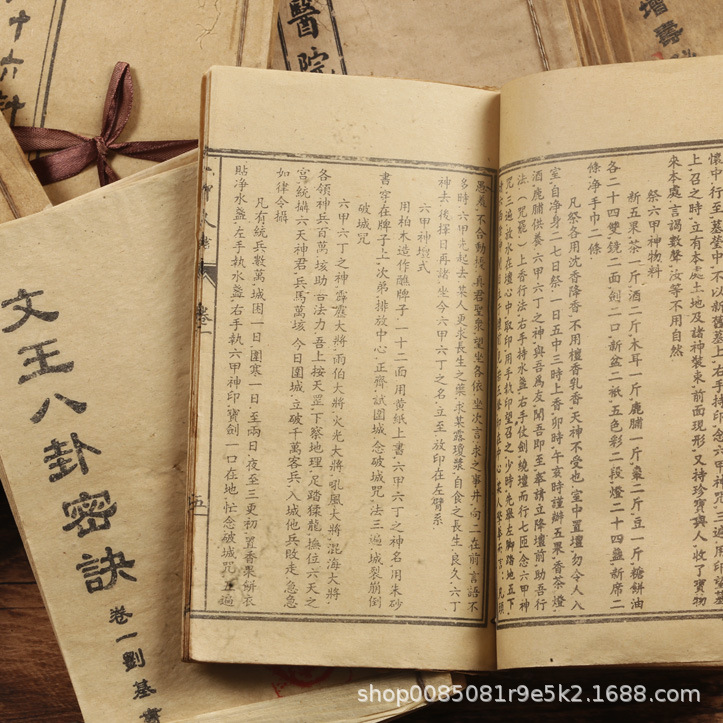 十六計
醫院
增壽
懷中行至墓瑩中不以新舊墓上右手持印念六甲神咒一遍用印
上召之時立有本處土地及諸神裝束前面現形又持珍寶與人收了寶物
來本處言謁數聲汝等不用自然
祭六甲神物料
新五果茶一斤酒二斤木耳一斤鹿脯一斤棗二斤豆一斤糖餅油
各二十四雙鏡二面劍二口新盆二祇五色彩二段燈二十四盞新席二
條淨手巾二條
凡祭各用沈香降香不用檀香乳香天神不受也室中置壇勿令人入
室自淨身二七日祭一日五中三時上香卯時午亥時謹辦五果香茶燈
酒鹿脯供養六甲六丁之神與吾為友聞吾即至奉請立降壇前助吾行
法(咒龍)上香行法右手持水盞右手仗劍繞壇而行七匝念六甲神
咒三遍放水在壇心中取印用手執印望召之少時先舉左腳踏地五下
愚着不合動機真君聖眾望坐各依坐次言求之事并向二在前言語不
多時六甲先起去某人更求長生之藥求某露瓊漿自食之長生良久六丁
神去後擇日再諸坐今六甲六丁之名立至放印在左臂系
六甲神壇式
用柏木造作醮牌子一十二面用黃紙上書六甲六丁之神名用朱砂
書字在牌子上次弟排放中心正齊試圍城念破城咒法三遍城裂崩倒
破城咒
六甲六丁之神霹靂大將雨伯大將火光大將吼風大將混海大將
各領神兵百萬垓助吾法力吾上按天罡下察地理足踏猱龍撫住六天之
宮統攝六天神君兵馬萬垓今日圍城立破千萬客兵入城他兵敗走急急
如律令攝
凡有統兵數萬城困一日圍寒一日至兩日夜至三更初置香果餅衣
貼淨水盞左手執水盞右手執六甲神印寶劍一口在地忙念破城咒五遍
卷一
五
文王八卦密訣
卷一劉基
shop0085081r9e5k2.1688.com